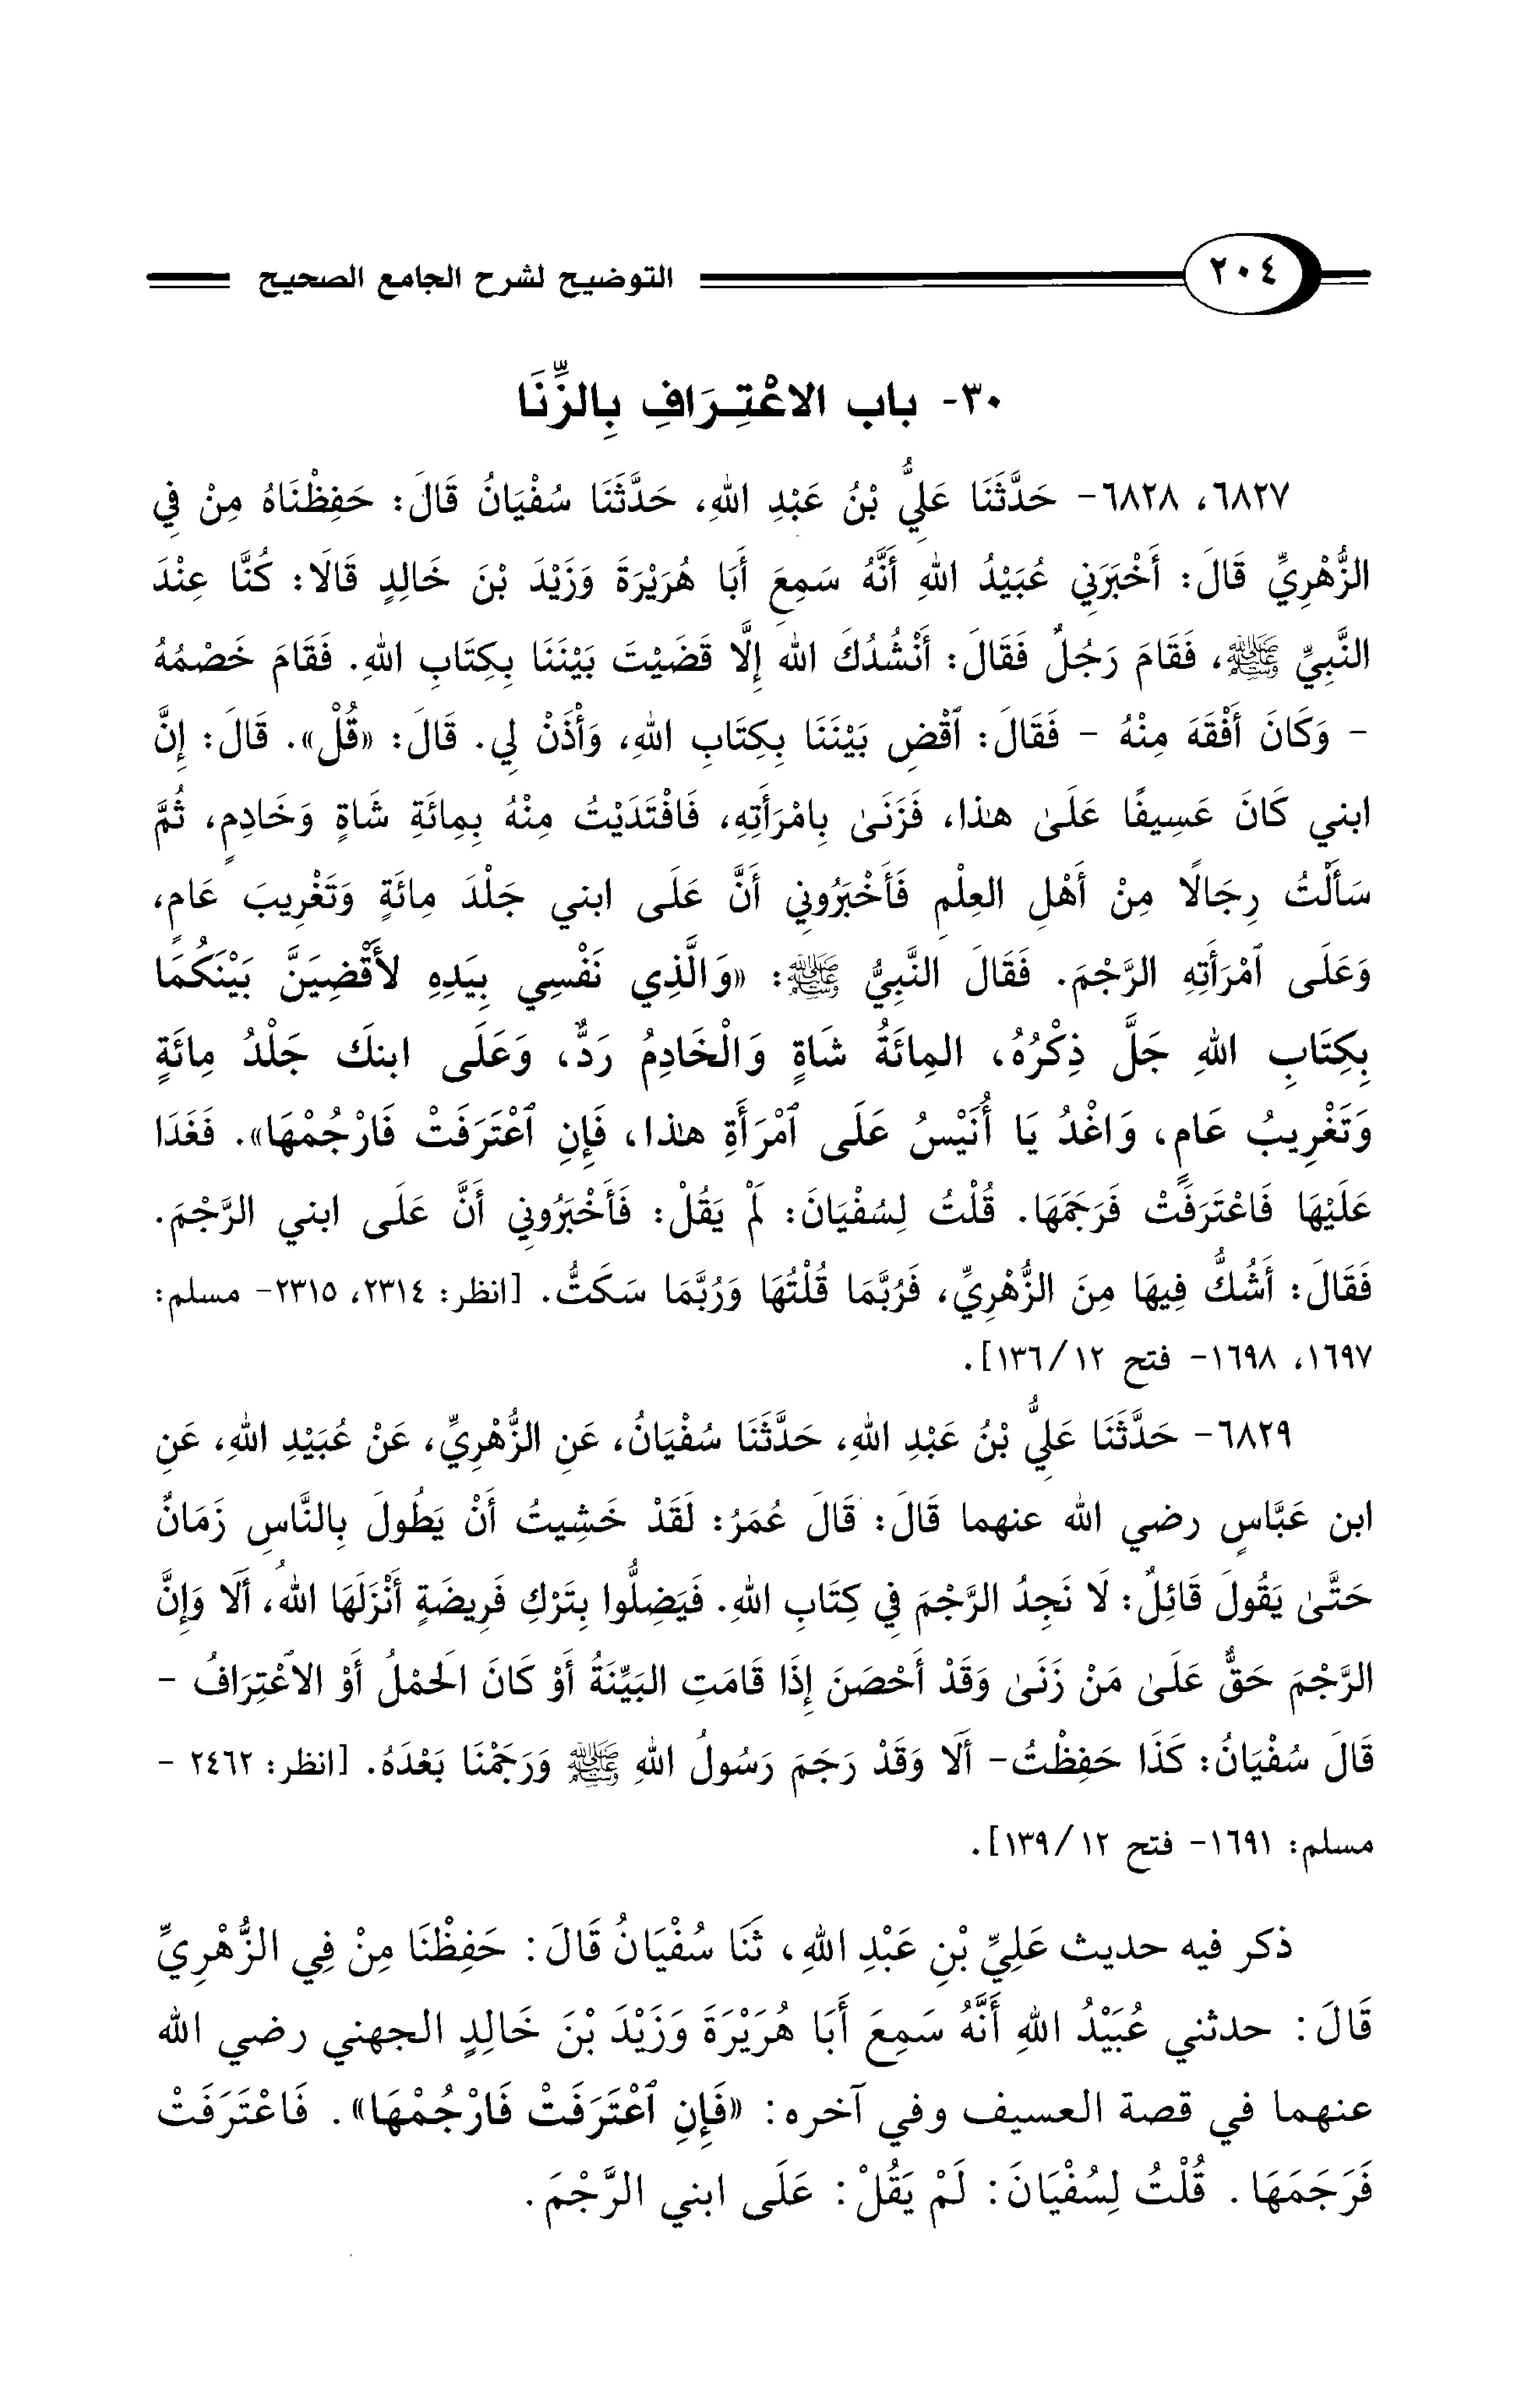 ٢٠٤ التوضيح لشرح الجامع الصحيح
٣٠- باب الاعْتِرَافِ بِالزِّنَا
٦٨٢٧، ٦٨٢٨- حَدَّثَنَا عَلِيُّ بْنُ عَبْدِ اللهِ، حَدَّثَنَا سُفْيَانُ قَالَ: حَفِظْنَاهُ مِنْ فِي
الزُّهْرِيِّ قَالَ: أَخْبَرَنِي عُبَيْدُ اللهِ أَنَّهُ سَمِعَ أَبَا هُرَيْرَةَ وَزَيْدَ بْنَ خَالِدٍ قَالَا: كُنَّا عِنْدَ
النَّبِيِّ ﷺ، فَقَامَ رَجُلٌ فَقَالَ: أَنْشُدُكَ الله إِلَّا قَضَيْتَ بَيْنَنَا بِكِتَابِ اللهِ. فَقَامَ خَصْمُهُ
- وَكَانَ أَفْقَهَ مِنْهُ - فَقَالَ: ٱقْضِ بَيْنَنَا بِكِتَابِ اللهِ، وَأْذَنْ لِي. قَالَ: «قُلْ». قَالَ: إِنَّ
ابني كَانَ عَسِيفًا عَلَىٰ هذا، فَزَنَىٰ بِامْرَأَتِهِ، فَافْتَدَيْتُ مِنْهُ بِمِائَةِ شَاةٍ وَخَادِمٍ، ثُمَّ
سَأَلْتُ رِجَالًا مِنْ أَهْلِ العِلْمِ فَأَخْبَرُونِي أَنَّ عَلَى ابني جَلْدَ مِائَةٍ وَتَغْرِيبَ عَامٍ،
وَعَلَى ٱمْرَأَتِهِ الرَّجْمَ. فَقَالَ النَّبِيُّ ﷺ: «وَالَّذِي نَفْسِي بِيَدِهِ لأَقْضِيَنَّ بَيْنَكُمَا
بِكِتَابِ اللهِ جَلَّ ذِكْرُهُ، المِائَةُ شَاةٍ وَالْخَادِمُ رَدٌّ، وَعَلَى ابنكَ جَلْدُ مِائَةٍ
وَتَغْرِيبُ عَامٍ، وَاغْدُ يَا أُنَيْسُ عَلَى ٱمْرَأَةِ هذا، فَإِنِ ٱعْتَرَفَتْ فَارْجُمْهَا». فَغَدَا
عَلَيْهَا فَاعْتَرَفَتْ فَرَجَمَهَا. قُلْتُ لِسُفْيَانَ: لَمْ يَقُلْ: فَأَخْبَرُونِي أَنَّ عَلَى ابني الرَّجْمَ.
فَقَالَ: أَشُكُّ فِيهَا مِنَ الزُّهْرِيِّ، فَرُبَّمَا قُلْتُهَا وَرُبَّمَا سَكَتُّ. [انظر: ٢٣١٤، ٢٣١٥- مسلم:
١٦٩٧، ١٦٩٨- فتح ١٢/ ١٣٦].
٦٨٢٩- حَدَّثَنَا عَلِيُّ بْنُ عَبْدِ اللهِ، حَدَّثَنَا سُفْيَانُ، عَنِ الزُّهْرِيِّ، عَنْ عُبَيْدِ اللهِ، عَنِ
ابن عَبَّاسٍ رضي الله عنهما قَالَ: قَالَ عُمَرُ: لَقَدْ خَشِيتُ أَنْ يَطُولَ بِالنَّاسِ زَمَانٌ
حَتَّىٰ يَقُولَ قَائِلٌ: لَا نَجِدُ الرَّجْمَ فِي كِتَابِ اللهِ. فَيَضِلُّوا بِتَرْكِ فَرِيضَةٍ أَنْزَلَهَا اللهُ، أَلَا وَإِنَّ
الرَّجْمَ حَقٌّ عَلَىٰ مَنْ زَنَىٰ وَقَدْ أَحْصَنَ إِذَا قَامَتِ البَيِّنَةُ أَوْ كَانَ الَحمْلُ أَوْ الاعْتِرَافُ -
قَالَ سُفْيَانُ: كَذَا حَفِظْتُ- أَلَا وَقَدْ رَجَمَ رَسُولُ اللهِ ﷺ وَرَجَمْنَا بَعْدَهُ. [انظر: ٢٤٦٢ -
مسلم: ١٦٩١- فتح ١٢/ ١٣٩].
ذكر فيه حديث عَلِيِّ بْنِ عَبْدِ اللهِ، ثَنَا سُفْيَانُ قَالَ: حَفِظْنَا مِنْ فِي الزُّهْرِيِّ
قَالَ: حدثني عُبَيْدُ اللهِ أَنَّهُ سَمِعَ أَبَا هُرَيْرَةَ وَزَيْدَ بْنَ خَالِدٍ الجهني رضي الله
عنهما في قصة العسيف وفي آخره: «فَإِنِ ٱعْتَرَفَتْ فَارْجُمْهَا». فَاعْتَرَفَتْ
فَرَجَمَهَا. قُلْتُ لِسُفْيَانَ: لَمْ يَقُلْ: عَلَى ابني الرَّجْمَ.